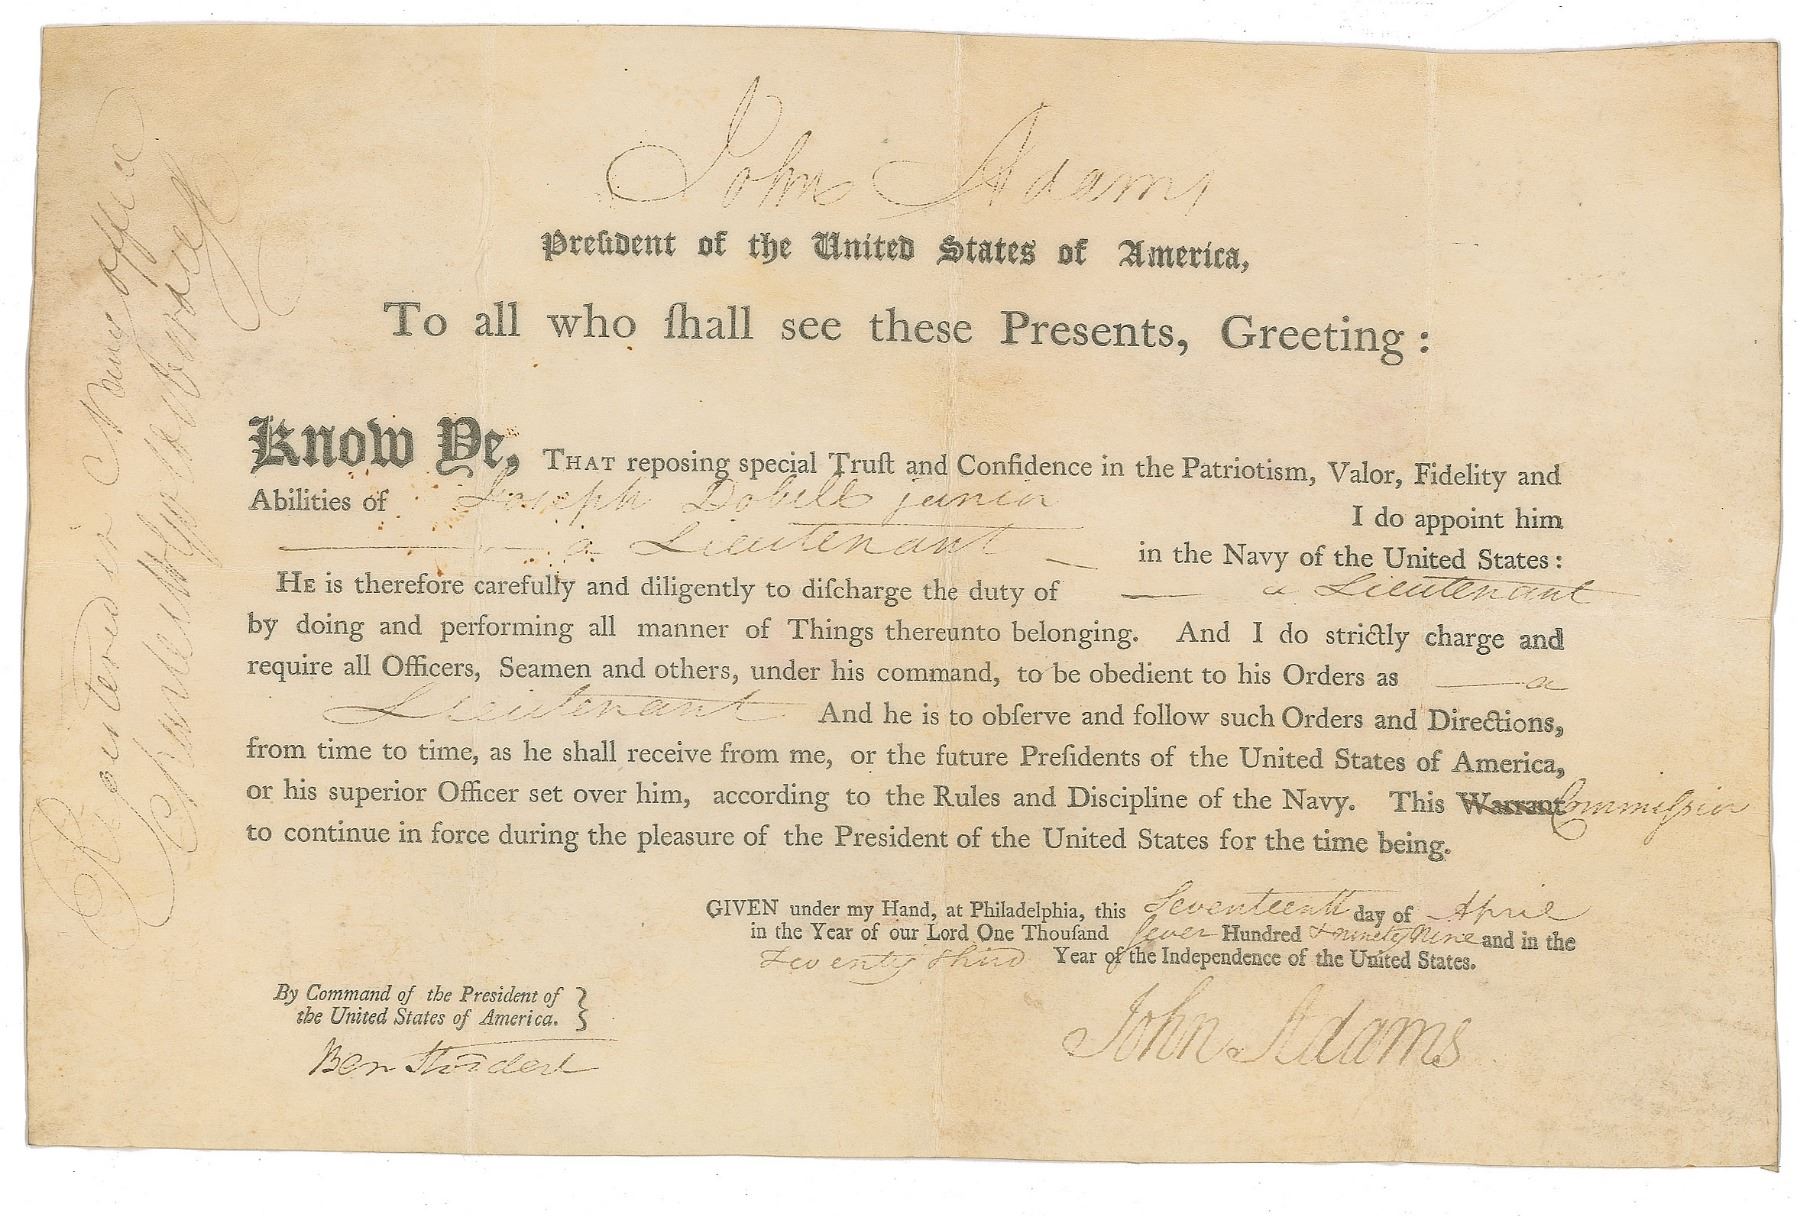 John Adams
Preſident of the United States of America,
To all who ſhall see these Presents, Greeting:
Know Ye, THAT reposing special Truſt and Confidence in the Patriotism, Valor, Fidelity and
Abilities of Joseph Dobell junior I do appoint him
a Lieutenant in the Navy of the United States:
HE is therefore carefully and diligently to diſcharge the duty of a Lieutenant
by doing and performing all manner of Things thereunto belonging. And I do strictly charge and
require all Officers, Seamen and others, under his command, to be obedient to his Orders as a
Lieutenant And he is to obſerve and follow such Orders and Directions,
from time to time, as he shall receive from me, or the future Preſidents of the United States of America,
or his superior Officer set over him, according to the Rules and Discipline of the Navy. This Warrant Commission
to continue in force during the pleasure of the President of the United States for the time being.
GIVEN under my Hand, at Philadelphia, this Seventeenth day of April
in the Year of our Lord One Thouſand Seven Hundred & ninety Nine and in the
Twenty third Year of the Independence of the United States.
By Command of the President of
the United States of America.
Ben Stoddert
John Adams
Registered in Navy office
Charles W Goldsborough